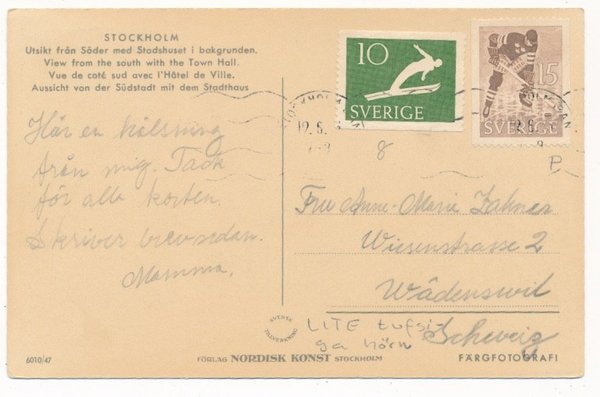 STOCKHOLM
Utsikt från Söder med Stadshuset i bakgrunden.
View from the south with the Town Hall.
Vue de coté sud avec l'Hôtel de Ville.
Aussicht von der Südstadt mit dem Stadthaus
10
SVERIGE
15
SVERIGE
8
P
Här en hälsning
från mig. Tack
för alla korten.
Skriver brev sedan.
Mamma.
Fru Anne-Marie
Wiesenstrasse 2
Wädenswil
Schweiz
LITE tufsi-
ga hörn
SVENSK
TILLVERKNING
6010/47
FÖRLAG NORDISK KONST STOCKHOLM
FÄRGFOTOGRAFI